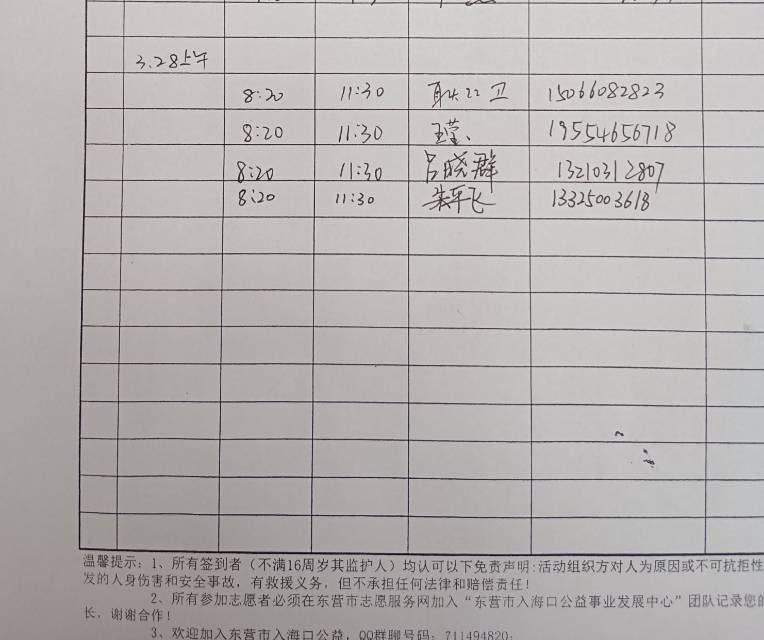 3.28上午
8:20 11:30 耿卫 15066082823
8:20 11:30 王莹 19554656718
8:20 11:30 吕晓群 13210312807
8:20 11:30 朱军飞 13325003618
温馨提示：1、所有签到者（不满16周岁其监护人）均认可以下免责声明:活动组织方对人为原因或不可抗拒性
发的人身伤害和安全事故，有救援义务，但不承担任何法律和赔偿责任！
2、所有参加志愿者必须在东营市志愿服务网加入“东营市入海口公益事业发展中心”团队记录您的
长，谢谢合作！
3、欢迎加入东营市入海口公益，QQ群聊号码：711494820;